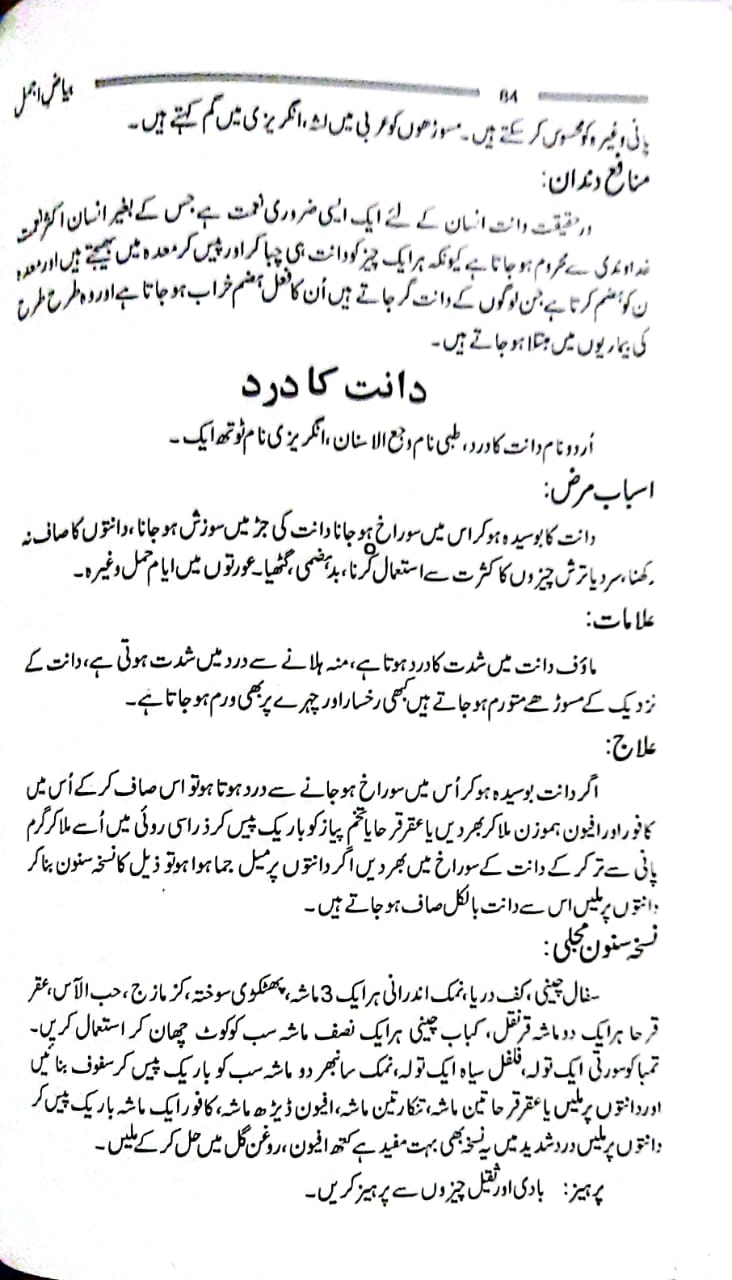 بیاض اجمل 64
پانی وغیرہ کو محسوس کر سکتے ہیں۔ مسوڑھوں کو عربی میں لثہ، انگریزی میں گم کہتے ہیں۔
منافع دندان:
درحقیقت دانت انسان کے لئے ایک ایسی ضروری نعمت ہے جس کے بغیر انسان اکثر نعمت
خداوندی سے محروم ہو جاتا ہے کیونکہ ہر ایک چیز کو دانت ہی چبا کر اور پیس کر معدہ میں بھیجتے ہیں اور معدہ
ن کو ہضم کرتا ہے جن لوگوں کے دانت گر جاتے ہیں اُن کا فعل ہضم خراب ہو جاتا ہے اور وہ طرح طرح
کی بیماریوں میں مبتلا ہو جاتے ہیں۔
دانت کا درد
اُردو نام دانت کا درد، طبی نام وجع الاسنان، انگریزی نام ٹوتھ ایک۔
اسباب مرض:
دانت کا بوسیدہ ہو کر اس میں سوراخ ہو جانا دانت کی جڑ میں سوزش ہو جانا، دانتوں کا صاف نہ
رکھنا، سرد یا ترش چیزوں کا کثرت سے استعمال کرنا، بدہضمی، گٹھیا۔ عورتوں میں ایام حمل وغیرہ۔
علامات:
ماؤف دانت میں شدت کا درد ہوتا ہے، منہ ہلانے سے درد میں شدت ہوتی ہے، دانت کے
نزدیک کے مسوڑھے متورم ہو جاتے ہیں کبھی رخسار اور چہرے پر بھی ورم ہو جاتا ہے۔
علاج:
اگر دانت بوسیدہ ہو کر اُس میں سوراخ ہو جانے سے درد ہوتا ہو تو اس صاف کر کے اُس میں
کافور اور افیون ہموزن ملا کر بھر دیں یا عقر قرحا یا تخم پیاز کو باریک پیس کر ذرا سی روئی میں اُسے ملا کر گرم
پانی سے تر کر کے دانت کے سوراخ میں بھر دیں اگر دانتوں پر میل جما ہوا ہو تو ذیل کا نسخہ سنون بنا کر
دانتوں پر ملیں اس سے دانت بالکل صاف ہو جاتے ہیں۔
نسخہ سنون مجلی:
سفال چینی، کف دریا، نمک اندرانی ہر ایک 3 ماشہ، پھٹکڑی سوختہ، کزمازج، حب الآس، عقر
قرحا ہر ایک دو ماشہ قرنفل، کباب چینی ہر ایک نصف ماشہ سب کو کوٹ چھان کر استعمال کریں۔
تمباکو سورتی ایک تولہ، فلفل سیاہ ایک تولہ، نمک سانبھر دو ماشہ سب کو باریک پیس کر سفوف بنائیں
اور دانتوں پر ملیں یا عقر قرحا تین ماشہ، تنکار تین ماشہ، افیون ڈیڑھ ماشہ، کافور ایک ماشہ باریک پیس کر
دانتوں پر ملیں درد شدید میں یہ نسخہ بھی بہت مفید ہے کتھ افیون، روغن گل میں حل کر کے ملیں۔
پرہیز: بادی اور ثقیل چیزوں سے پرہیز کریں۔